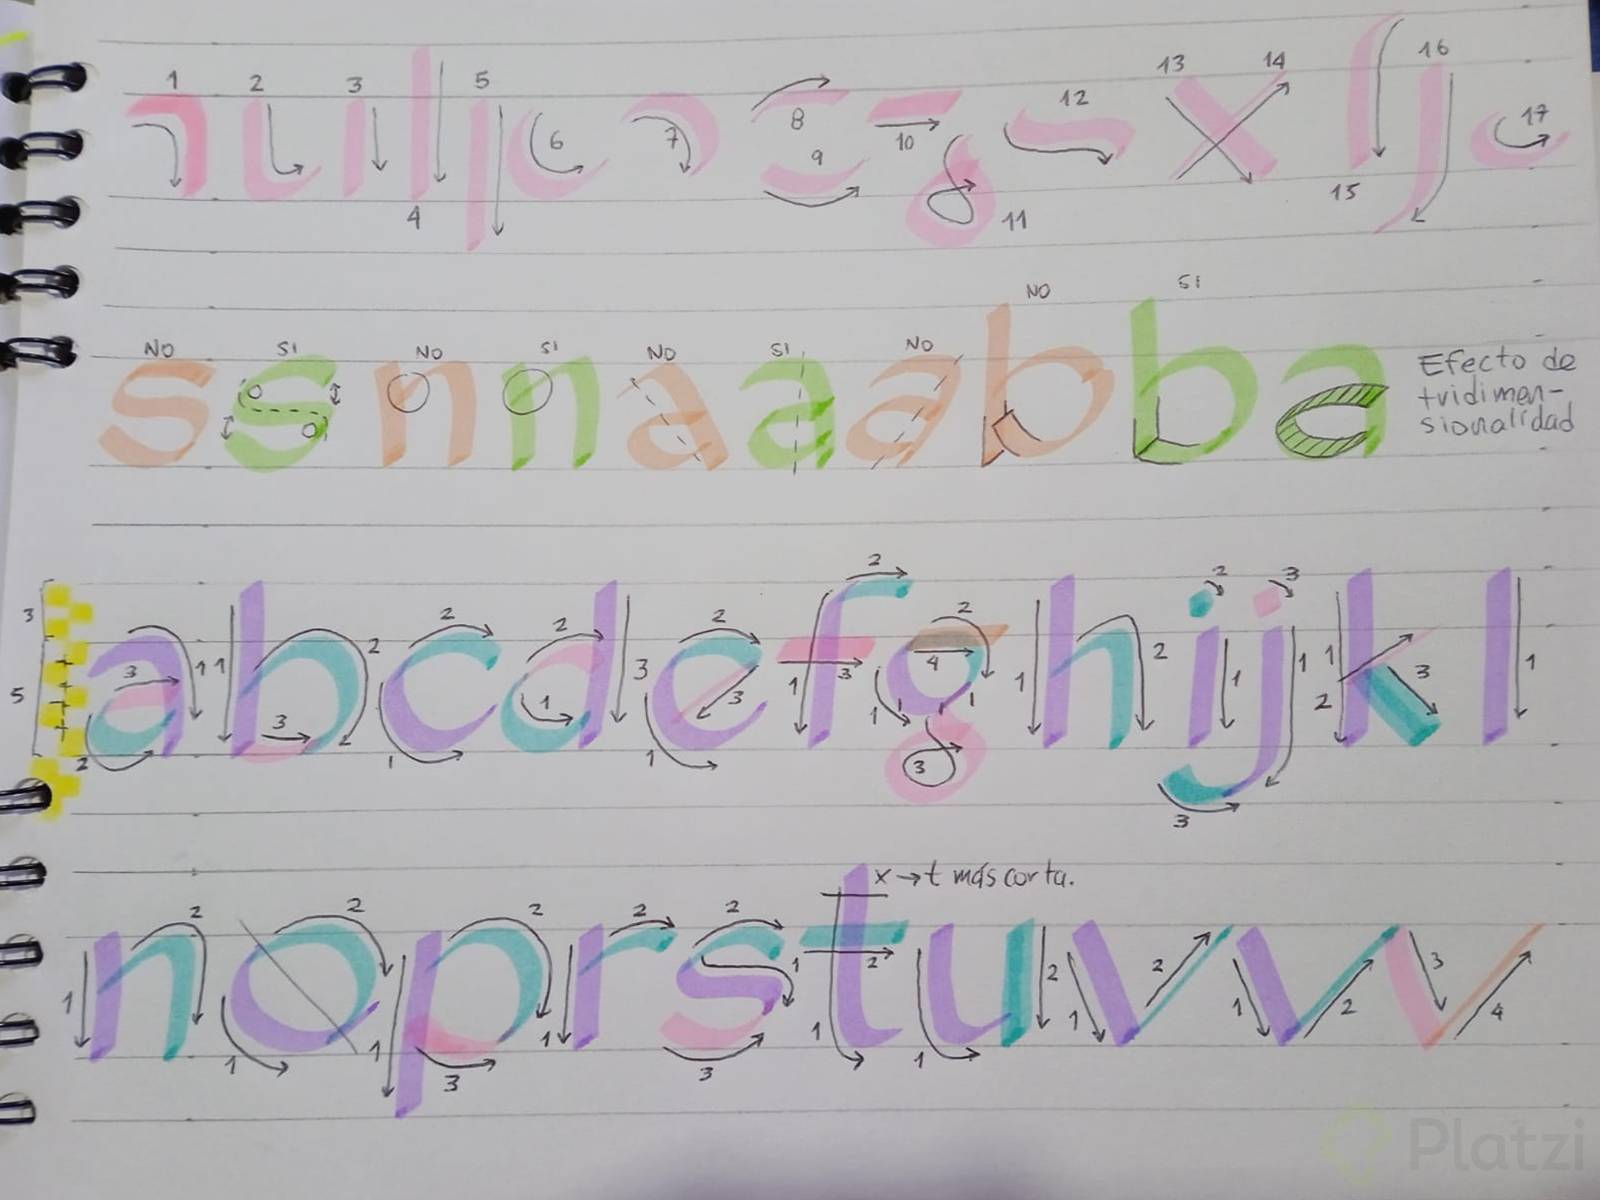 1 2 3 4 5 6 7 8 9 10 11 12 13 14 15 16 17
NO SI NO SI NO SI NO NO SI
s s n n a a a b b a Efecto de
tridimen-
sionalidad
3
5
a b c d e f g h i j k l
x → t más corta.
n o p r s t u v w
Platzi